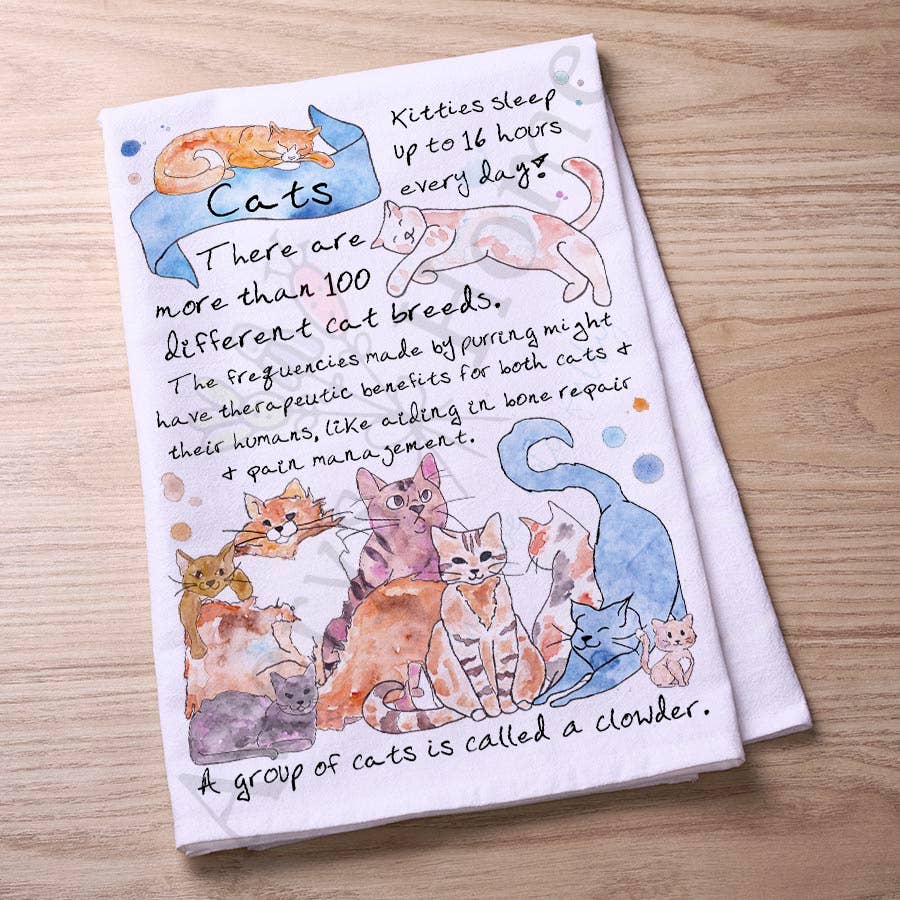 Kitties sleep
up to 16 hours
every day!
Cats
There are
more than 100
different cat breeds.
The frequencies made by purring might
have therapeutic benefits for both cats &
their humans, like aiding in bone repair
& pain management.
A group of cats is called a clowder.